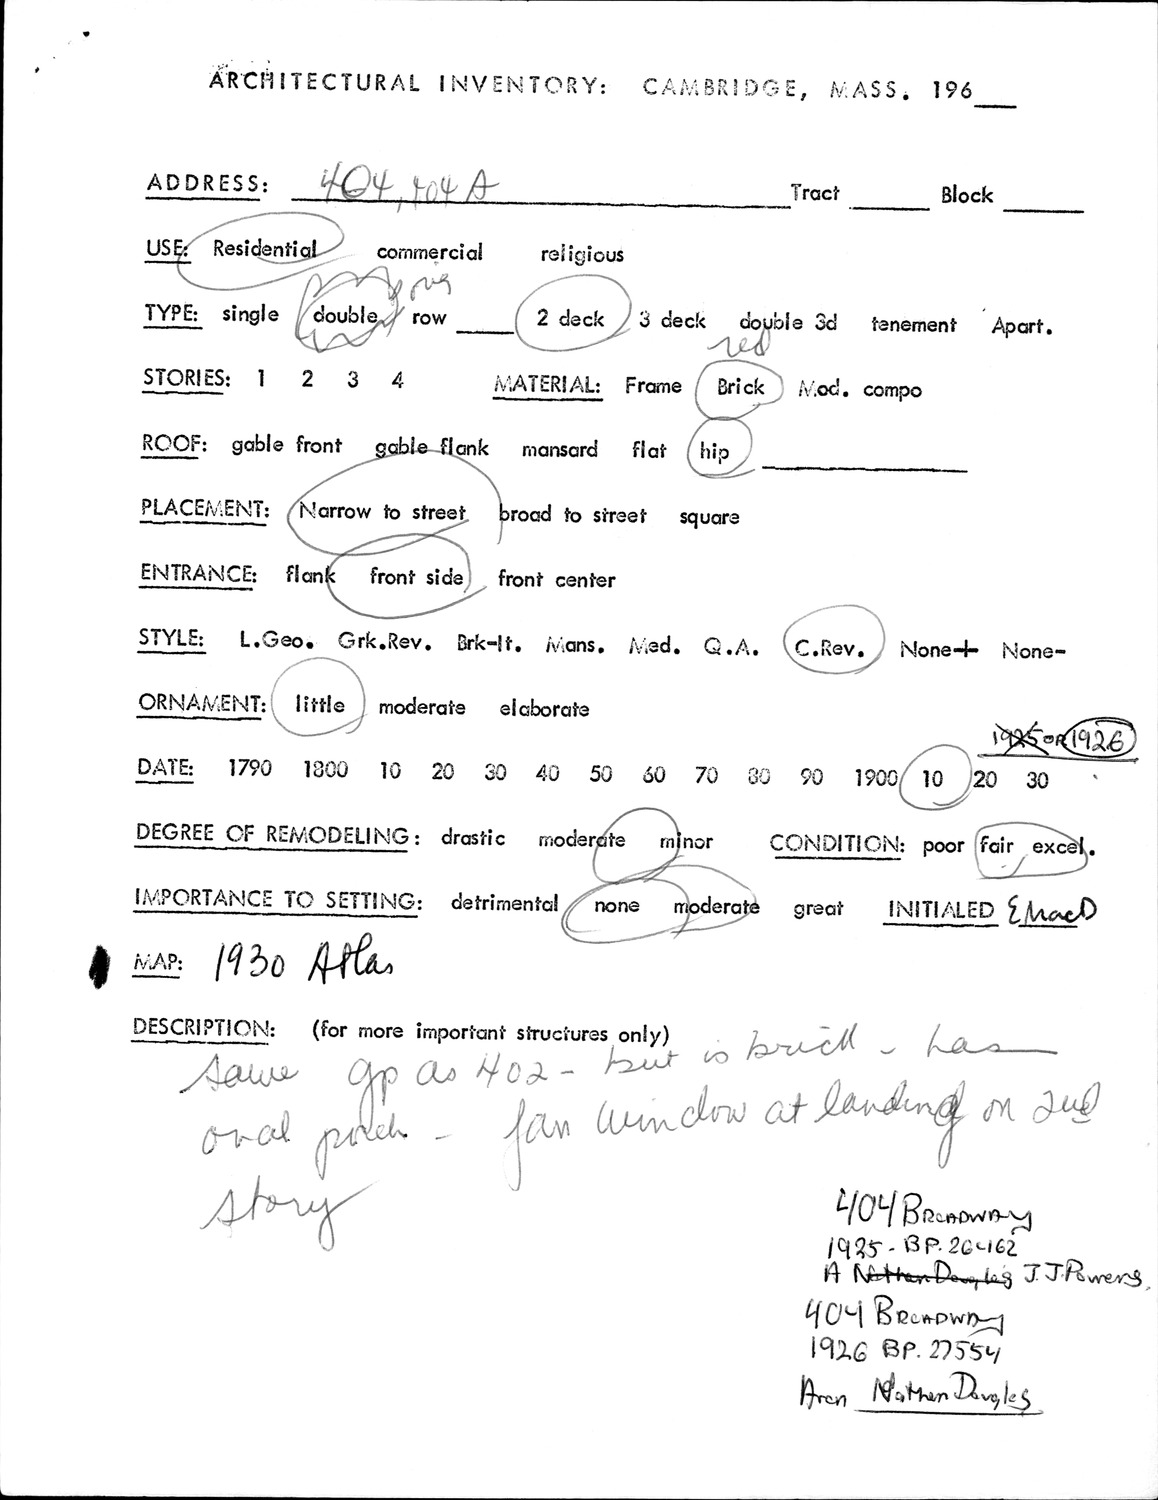 ARCHITECTURAL INVENTORY: CAMBRIDGE, MASS. 196___
ADDRESS: 404, 404 A Tract ___ Block ___
USE: Residential commercial religious
TYPE: single double row ___ 2 deck 3 deck double 3d tenement Apart.
red
STORIES: 1 2 3 4 MATERIAL: Frame Brick Mod. compo
ROOF: gable front gable flank mansard flat hip ___
PLACEMENT: Narrow to street broad to street square
ENTRANCE: flank front side front center
STYLE: L.Geo. Grk.Rev. Brk-It. Mans. Med. Q.A. C.Rev. None+ None-
ORNAMENT: little moderate elaborate
1925 OR 1926
DATE: 1790 1800 10 20 30 40 50 60 70 80 90 1900 10 20 30
DEGREE OF REMODELING: drastic moderate minor CONDITION: poor fair excel.
IMPORTANCE TO SETTING: detrimental none moderate great INITIALED EMacD
MAP: 1930 Atlas
DESCRIPTION: (for more important structures only)
same gp as 402 - but is brick - has
oval porch - fan window at landing on 2nd
story
404 BROADWAY
1925 - BP. 26462
A Nathan Douglas J.J. Powers
404 BROADWAY
1926 BP. 27554
Arch Nathan Douglas